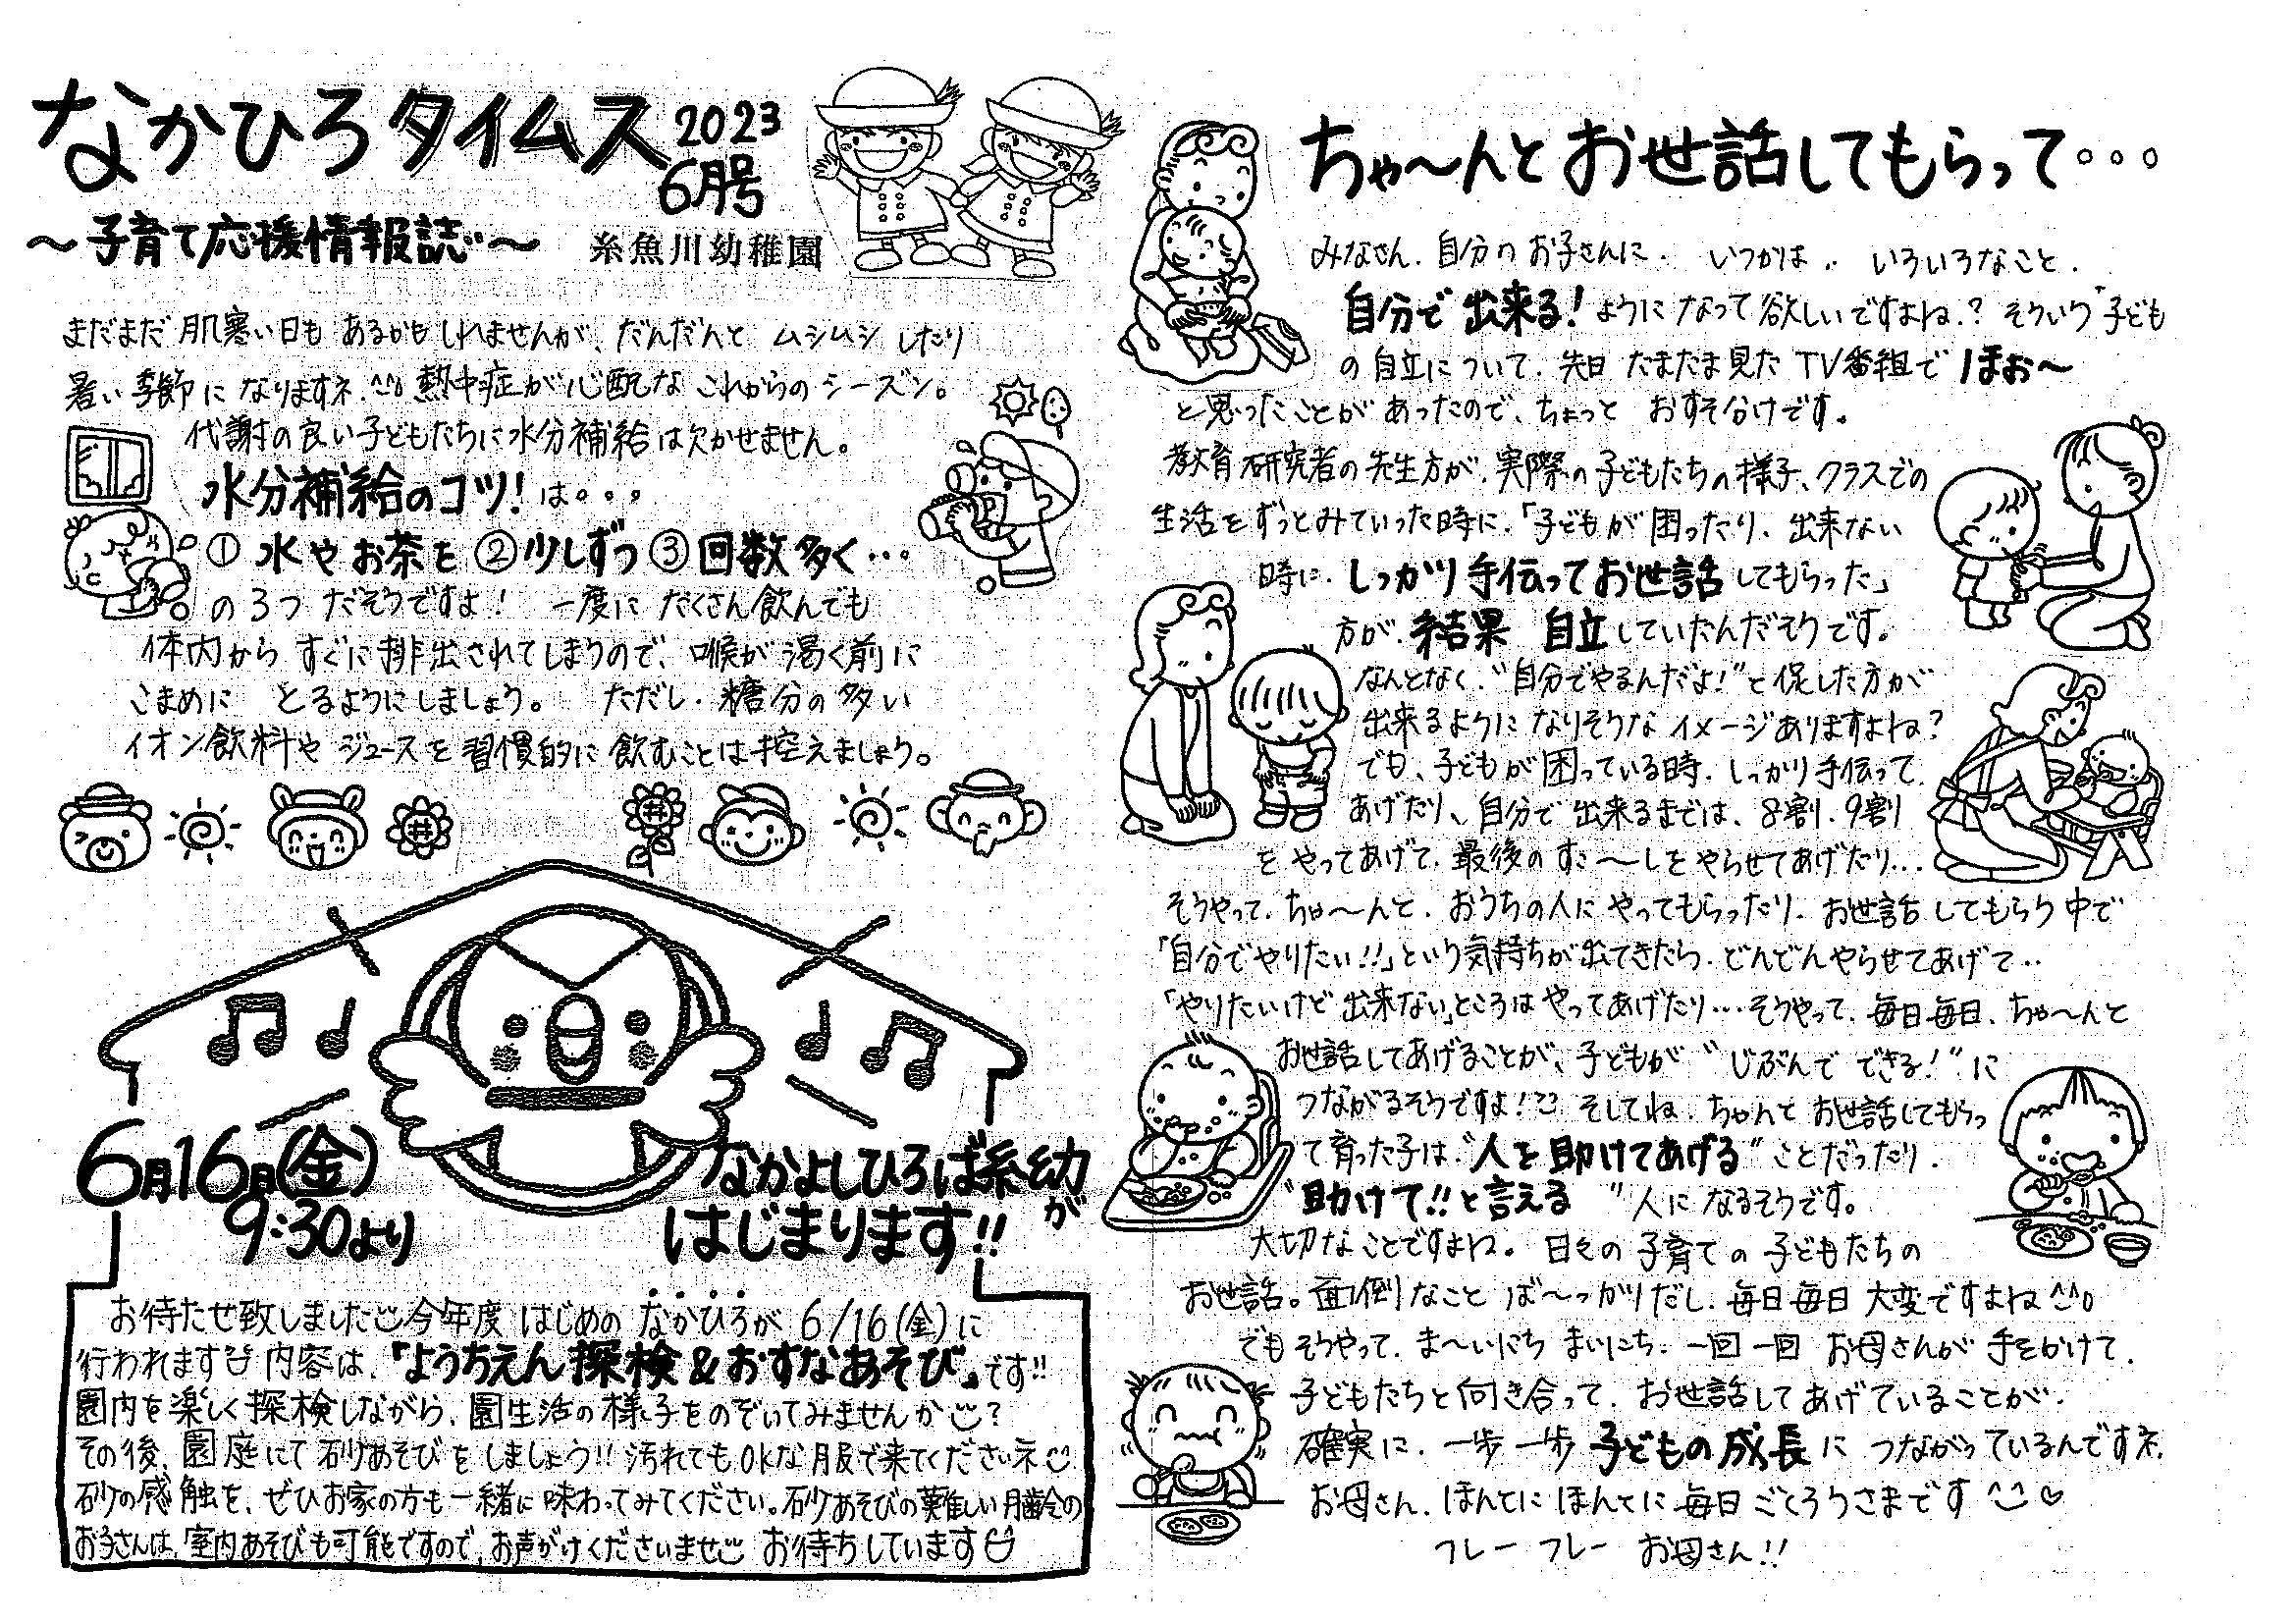 なかひろタイムス 2023 6月号
～子育て応援情報誌～ 糸魚川幼稚園
まだまだ 肌寒い日も あるかもしれませんが、だんだんと ムシムシ したり
暑い季節に なりますネ。熱中症が心配な これからの シーズン。
代謝の良い子どもたちに水分補給は欠かせません。
水分補給のコツ! は。。。
① 水やお茶を ②少しずつ ③回数多く…
の3つ だそうですよ! 一度に たくさん飲んでも
体内から すぐに排出されてしまうので、喉が渇く前に
こまめに とるようにしましょう。 ただし、糖分の多い
イオン飲料や ジュースを習慣的に飲むことは控えましょう。
6月16日(金)
9:30より
なかよしひろば糸幼が
はじまります!!
お待たせ致しました 今年度 はじめの なかひろが 6/16(金)に
行われます 内容は、「ようちえん探検&おすなあそび」です!!
園内を楽しく探検しながら、園生活の様子をのぞいてみませんか?
その後、園庭にて砂あそびをしましょう!! 汚れてもOKな服で来てくださいネ
砂の感触を、ぜひお家の方も一緒に味わってみてください。砂あそびの難しい月齢の
お子さんは、室内あそびも可能ですので、お声がけくださいませ お待ちしています
ちゃ～んとお世話してもらって...
みなさん、自分のお子さんに、 いつかは‥ いろいろなこと、
自分で出来る! ようになって欲しいですよね? そういう 子ども
の自立について、先日 たまたま見たTV番組で ほぉ～
と思ったことが あったので、ちょっと おすそ分けです。
教育研究者の先生方が、実際の子どもたちの様子、クラスでの
生活をずっとみていった時に、「子どもが困ったり、出来ない
時に、しっかり手伝ってお世話してもらった」
方が、結果 自立していたんだそうです。
なんとなく、“自分でやるんだよ!”と促した方が
出来るようになりそうなイメージありますよね?
でも、子どもが困っている時、しっかり手伝って
あげたり、自分で出来るまでは、8割、9割
をやってあげて、最後のすこ～しをやらせてあげたり…
そうやって、ちゃ～んと、おうちの人にやってもらったり、お世話してもらう中で
「自分でやりたい!!」という気持ちが出てきたら、どんどんやらせてあげて‥
「やりたいけど出来ない」ところはやってあげたり…そうやって、毎日毎日、ちゃ～んと
お世話してあげることが、子どもが “じぶんで できる!”に
つながるそうですよ! そしてね、ちゃんと お世話してもらっ
て育った子は、“人を助けてあげる”ことだったり、
“助けて!!と言える ”人になるそうです。
大切なことですよね。日々の子育ての子どもたちの
お世話。面倒なこと ば～っかりだし、毎日毎日 大変ですよね
でもそうやって、ま～いにち まいにち、一回一回 お母さんが 手をかけて、
子どもたちと向き合って、お世話してあげていることが、
確実に、一歩一歩 子どもの成長に つながっているんですネ。
お母さん、ほんとに ほんとに毎日 ごくろうさまです
フレー フレー お母さん!!